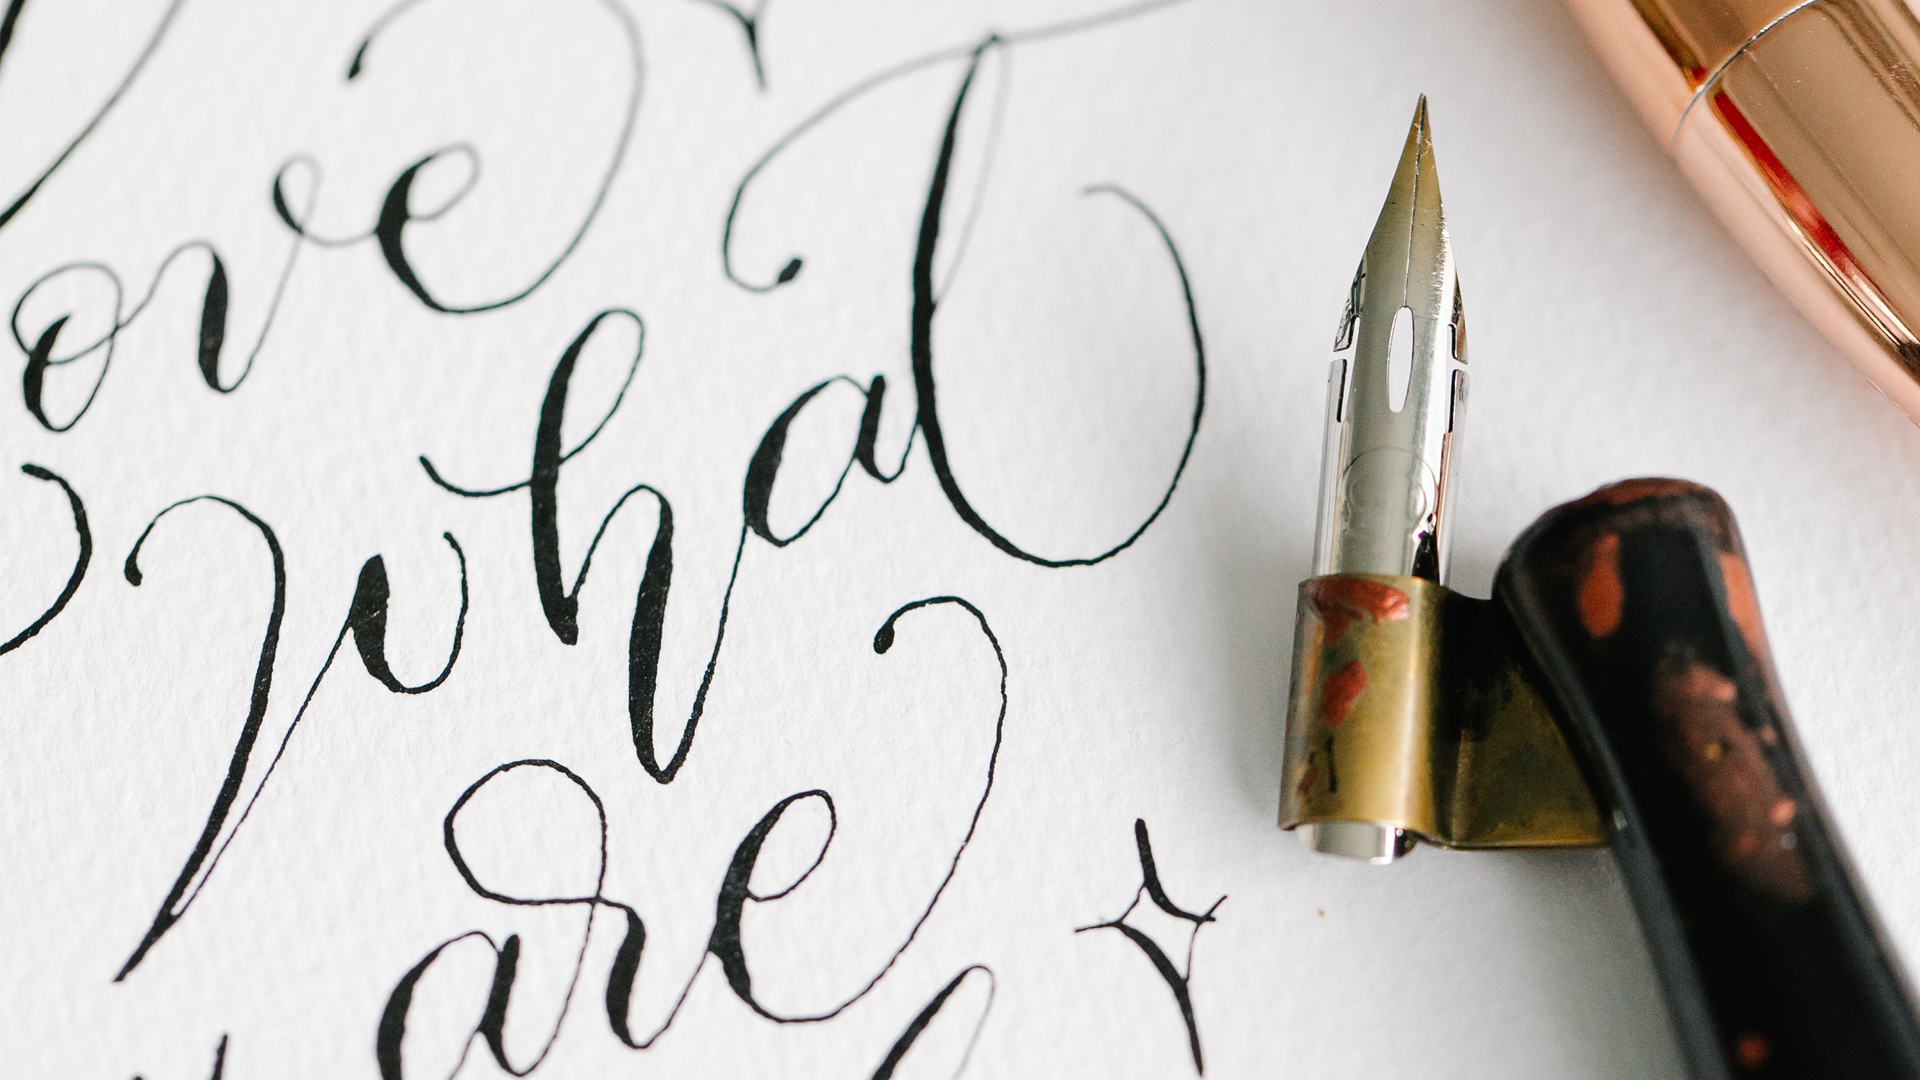 ove
what
are